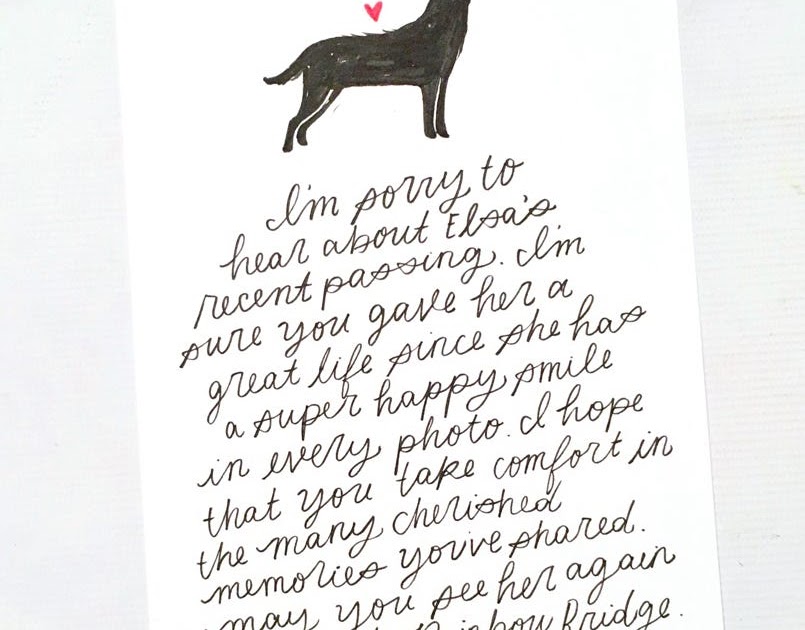 I'm sorry to
hear about Elsa's
recent passing. I'm
sure you gave her a
great life since she has
a super happy smile
in every photo. I hope
that you take comfort in
the many cherished
memories you've shared.
may you see her again
Rainbow Bridge.